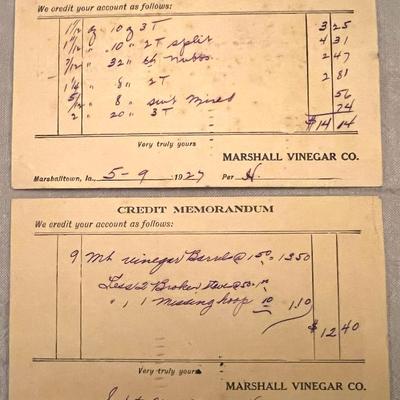 We credit your account as follows:
1 1/2 of 10 oz 3T 3 25
1 1/2 " 10 " 2T split 4 31
7/12 " 32 " 6h Nubbs 2 47
1 1/4 " 8 " 2T 2 81
5/12 " 8 " swt Mixed 56
2 " 20 " 3T 74
$14 14
Very truly yours
MARSHALL VINEGAR CO.
Marshalltown, Ia., 5-9 1927 Per H.
CREDIT MEMORANDUM
We credit your account as follows:
9 Mt vinegar Barrel @ 1 50 - 13 50
Less 2 Broken stave @ 50 1 00
" 1 missing hoop 10 1 10
$12 40
Very truly yours
MARSHALL VINEGAR CO.